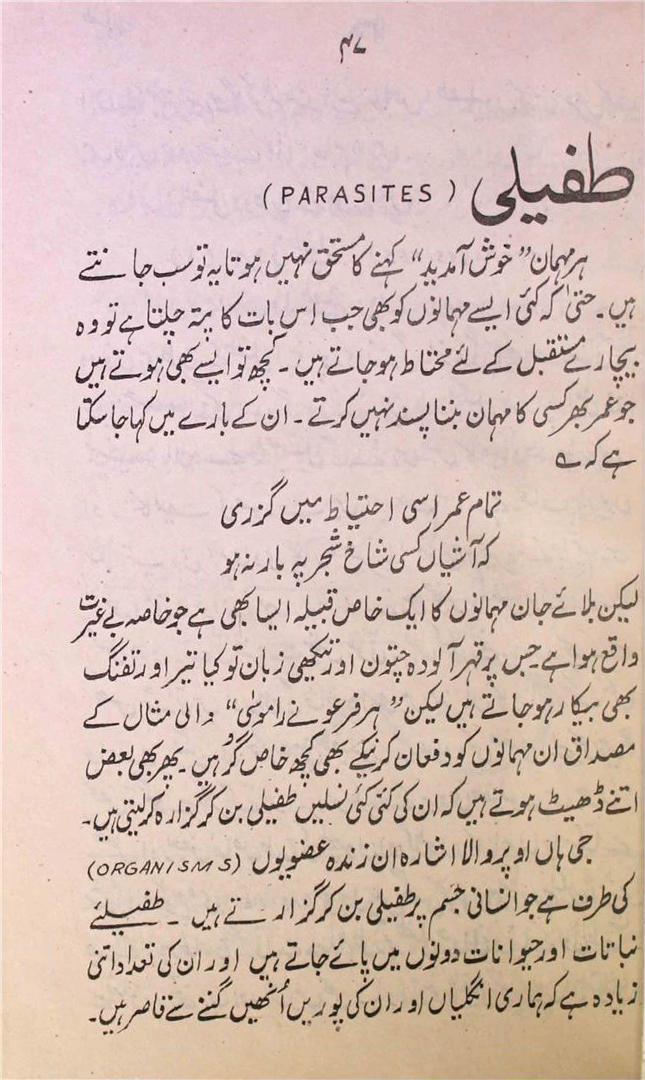 ۴۷
طفیلی (PARASITES)
ہر مہمان ”خوش آمدید“ کہنے کا مستحق نہیں ہوتا یہ تو سب جانتے
ہیں۔ حتیٰ کہ کئی ایسے مہمانوں کو بھی جب اس بات کا پتہ چلتا ہے تو وہ
بیچارے مستقبل کے لئے محتاط ہو جاتے ہیں۔ کچھ تو ایسے بھی ہوتے ہیں
جو عمر بھر کسی کا مہمان بننا پسند نہیں کرتے۔ ان کے بارے میں کہا جا سکتا
ہے کہ ؎
تمام عمر اسی احتیاط میں گزری
کہ آشیاں کسی شاخِ شجر پہ بار نہ ہو
لیکن بلائے جان مہمانوں کا ایک خاص قبیلہ ایسا بھی ہے جو خاصہ بے غیرت
واقع ہوا ہے جس پر قہر آلودہ چتون اور تیکھی زبان تو کیا تیر اور تفنگ
بھی بیکار ہو جاتے ہیں لیکن ”ہر فرعونے را موسٰی“ والی مثال کے
مصداق ان مہمانوں کو دفعان کرنیکے بھی کچھ خاص گُر ہیں۔ پھر بھی بعض
اتنے ڈھیٹ ہوتے ہیں کہ ان کی کئی کئی نسلیں طفیلی بن کر گزارہ کر لیتی ہیں۔
جی ہاں اوپر والا اشارہ ان زندہ عضویوں (ORGANISMS)
کی طرف ہے جو انسانی جسم پر طفیلی بن کر گزارتے ہیں۔ طفیلئے
نباتات اور حیوانات دونوں میں پائے جاتے ہیں اور ان کی تعداد اتنی
زیادہ ہے کہ ہماری انگلیاں اور ان کی پوریں اُنھیں گننے سے قاصر ہیں۔